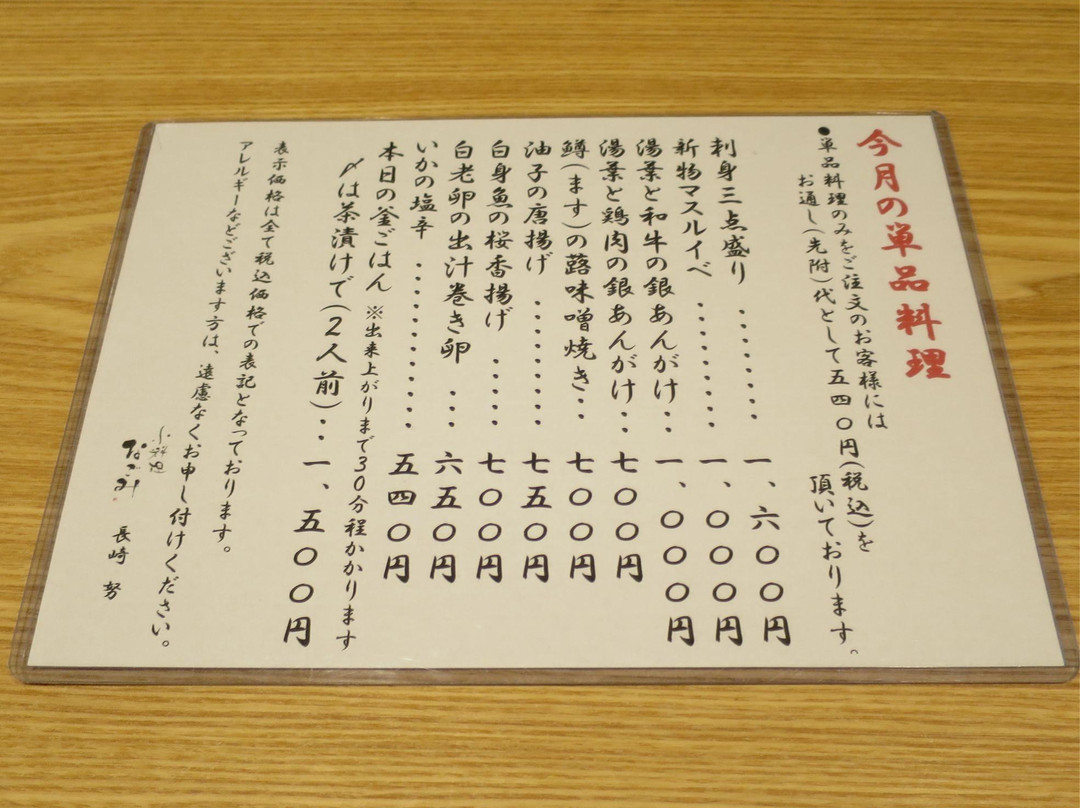 今月の単品料理
●単品料理のみをご注文のお客様には
お通し(先附)代として五四〇円(税込)を
頂いております。
刺身三点盛り ・・・・・・・ 一、六〇〇円
新物マスルイベ ・・・・・・・・ 一、〇〇〇円
湯葉と和牛の銀あんがけ・・ 一、〇〇〇円
湯葉と鶏肉の銀あんがけ・・ 七〇〇円
鱒(ます)の蕗味噌焼き・・ 七〇〇円
油子の唐揚げ ・・・・・・・・ 七五〇円
白身魚の桜香揚げ ・・・・ 七〇〇円
白老卵の出汁巻き卵 ・・ 六五〇円
いかの塩辛 ・・・・・・・・・・ 五四〇円
本日の釜ごはん ※出来上がりまで30分程かかります
〆は茶漬けで(2人前)・・ 一、五〇〇円
表示価格は全て税込価格での表記となっております。
アレルギーなどございます方は、遠慮なくお申し付けください。
長崎 努